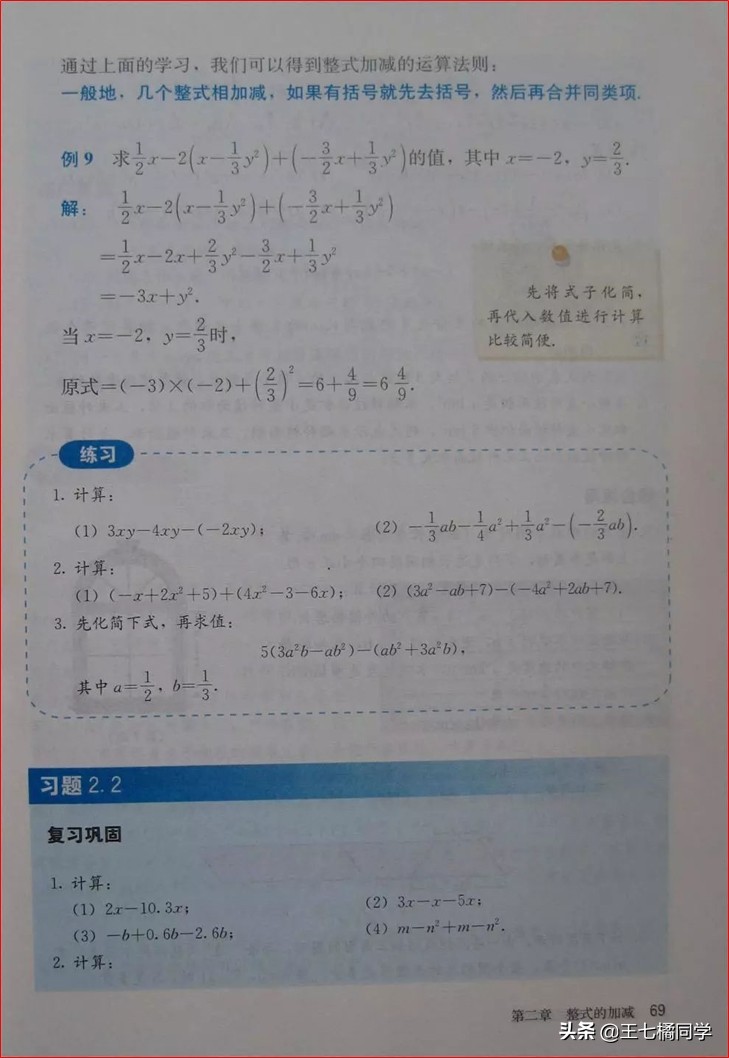 通过上面的学习，我们可以得到整式加减的运算法则：
一般地，几个整式相加减，如果有括号就先去括号，然后再合并同类项.
例9 求1/2x−2(x−1/3y²)+(−3/2x+1/3y²)的值，其中x=−2，y=2/3.
解： 1/2x−2(x−1/3y²)+(−3/2x+1/3y²)
=1/2x−2x+2/3y²−3/2x+1/3y²
=−3x+y².
先将式子化简，
再代入数值进行计算
比较简便.
当x=−2，y=2/3时，
原式=(−3)×(−2)+(2/3)²=6+4/9=6 4/9.
练习
1. 计算：
(1) 3xy−4xy−(−2xy)； (2) −1/3ab−1/4a²+1/3a²−(−2/3ab).
2. 计算：
(1) (−x+2x²+5)+(4x²−3−6x)； (2) (3a²−ab+7)−(−4a²+2ab+7).
3. 先化简下式，再求值：
5(3a²b−ab²)−(ab²+3a²b)，
其中a=1/2，b=1/3.
习题 2.2
复习巩固
1. 计算：
(1) 2x−10.3x； (2) 3x−x−5x；
(3) −b+0.6b−2.6b； (4) m−n²+m−n².
2. 计算：
第二章 整式的加减 69
头条 @王七橘同学